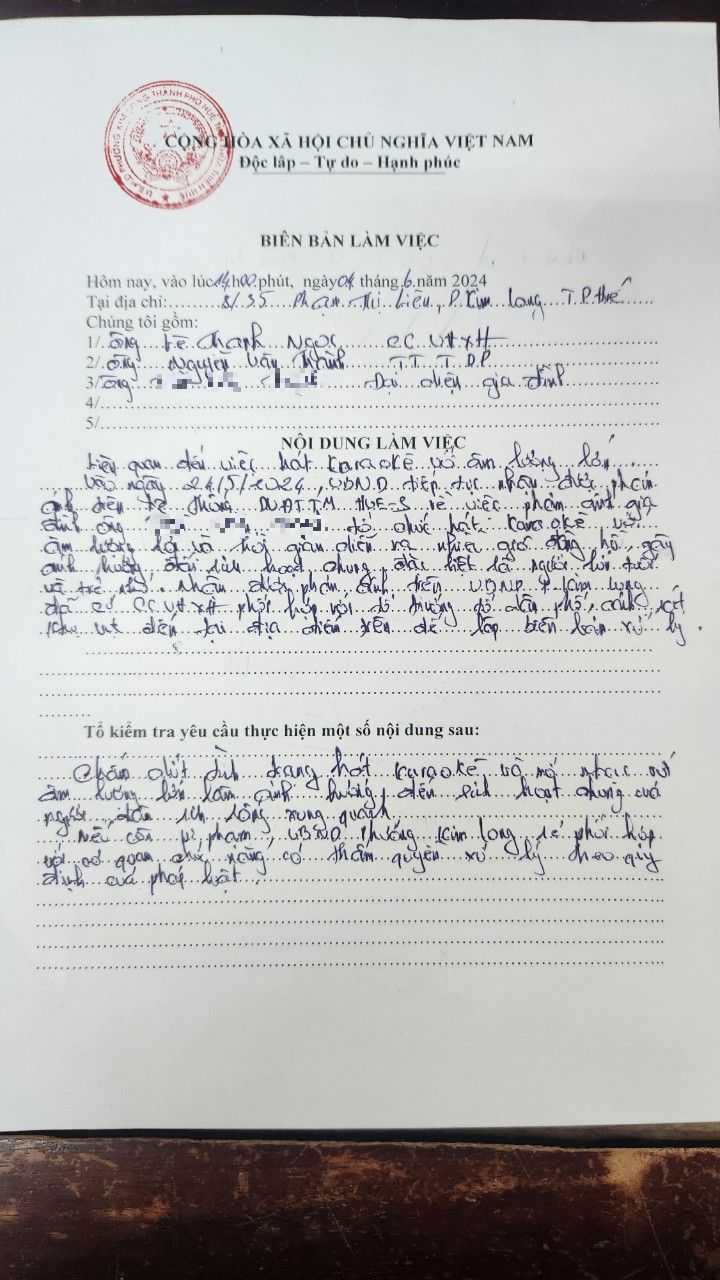 U.B.N.D PHƯỜNG KIM LONG THÀNH PHỐ HUẾ
CỘNG HÒA XÃ HỘI CHỦ NGHĨA VIỆT NAM
Độc lập – Tự do – Hạnh phúc
BIÊN BẢN LÀM VIỆC
Hôm nay, vào lúc 14h00 phút, ngày 04 tháng 6 năm 2024
Tại địa chỉ: 8/35 Phạm Thị Liên, P. Kim Long T.P Huế
Chúng tôi gồm:
1/. ông Lê Thanh Ngọc CC VHXH
2/. ông Nguyễn Văn Thành TT TDP
3/ ông Đại diện gia đình
4/
5/
NỘI DUNG LÀM VIỆC
Liên quan đến việc hát karaoke với âm lượng lớn
Vào ngày 24/5/2024, UBND tiếp tục nhận được phản
ánh trên hệ thống ĐVATTM HUE-S về việc phản ánh gia
đình ông tổ chức hát karaoke với
âm lượng và thời gian diễn ra nhiều giờ đồng hồ, gây
ảnh hưởng đến sinh hoạt chung, đặc biệt là người lớn tuổi
và trẻ nhỏ. Nhận được phản ánh trên UBND P Kim Long
đã cử CC.VHXH phối hợp với tổ trưởng tổ dân phố, cảnh sát
khu vực đến tại địa điểm trên để lập biên bản xử lý.
Tổ kiểm tra yêu cầu thực hiện một số nội dung sau:
Chấm dứt tình trạng hát karaoke và mở nhạc với
âm lượng lớn làm ảnh hưởng đến sinh hoạt chung của
người dân sinh sống xung quanh
Nếu còn vi phạm, UBND Phường Kim Long sẽ phối hợp
với cơ quan chức năng có thẩm quyền xử lý theo quy
định của pháp luật.